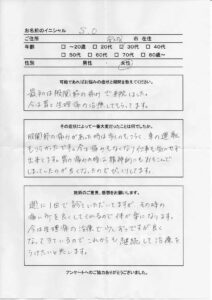 お名前のイニシャル S.O
ご住所 市 在住
年齢 ～20歳 20代 30代 40代
50代 60代 70代 80歳～
性別 男性 女性
可能であればお悩みの症状と期間を教えてください。
最初は股関節の痛みで来院しました。
今は肩と生理痛の治療してもらってます。
その症状によって一番大変だったことは何でしたか。
股関節の痛みがあった時は歩くのもつらく、車の運転
もつらかったです。今は痛みもなくなり仕事も悩みせず
出来てます。肩の痛みの時は精神的にもおちこんで
しまっていたのが良くなったのでびっくりしてます。
施術のご意見、感想をお願いします。
週に1回で診てもらっていただいてますが、その時の
痛い所を良くしてくれるので体が楽になります。
今は生理痛の治療で少しずつですが良く
なってきているのでこれからも継続して治療を
うけたいと思います。
アンケートへのご協力ありがとうございました。